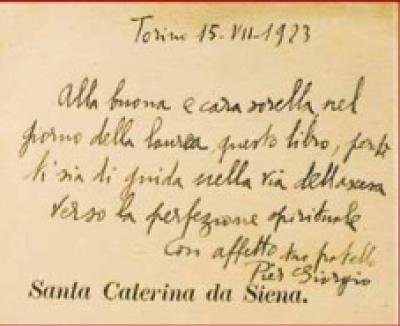 Torino 15-VII-1923
Alla buona e cara sorella nel
giorno della laurea questo libro, perchè
ti sia di guida nella via dell'ascesa
verso la perfezione spirituale
con affetto tuo fratello
Pier Giorgio
Santa Caterina da Siena.